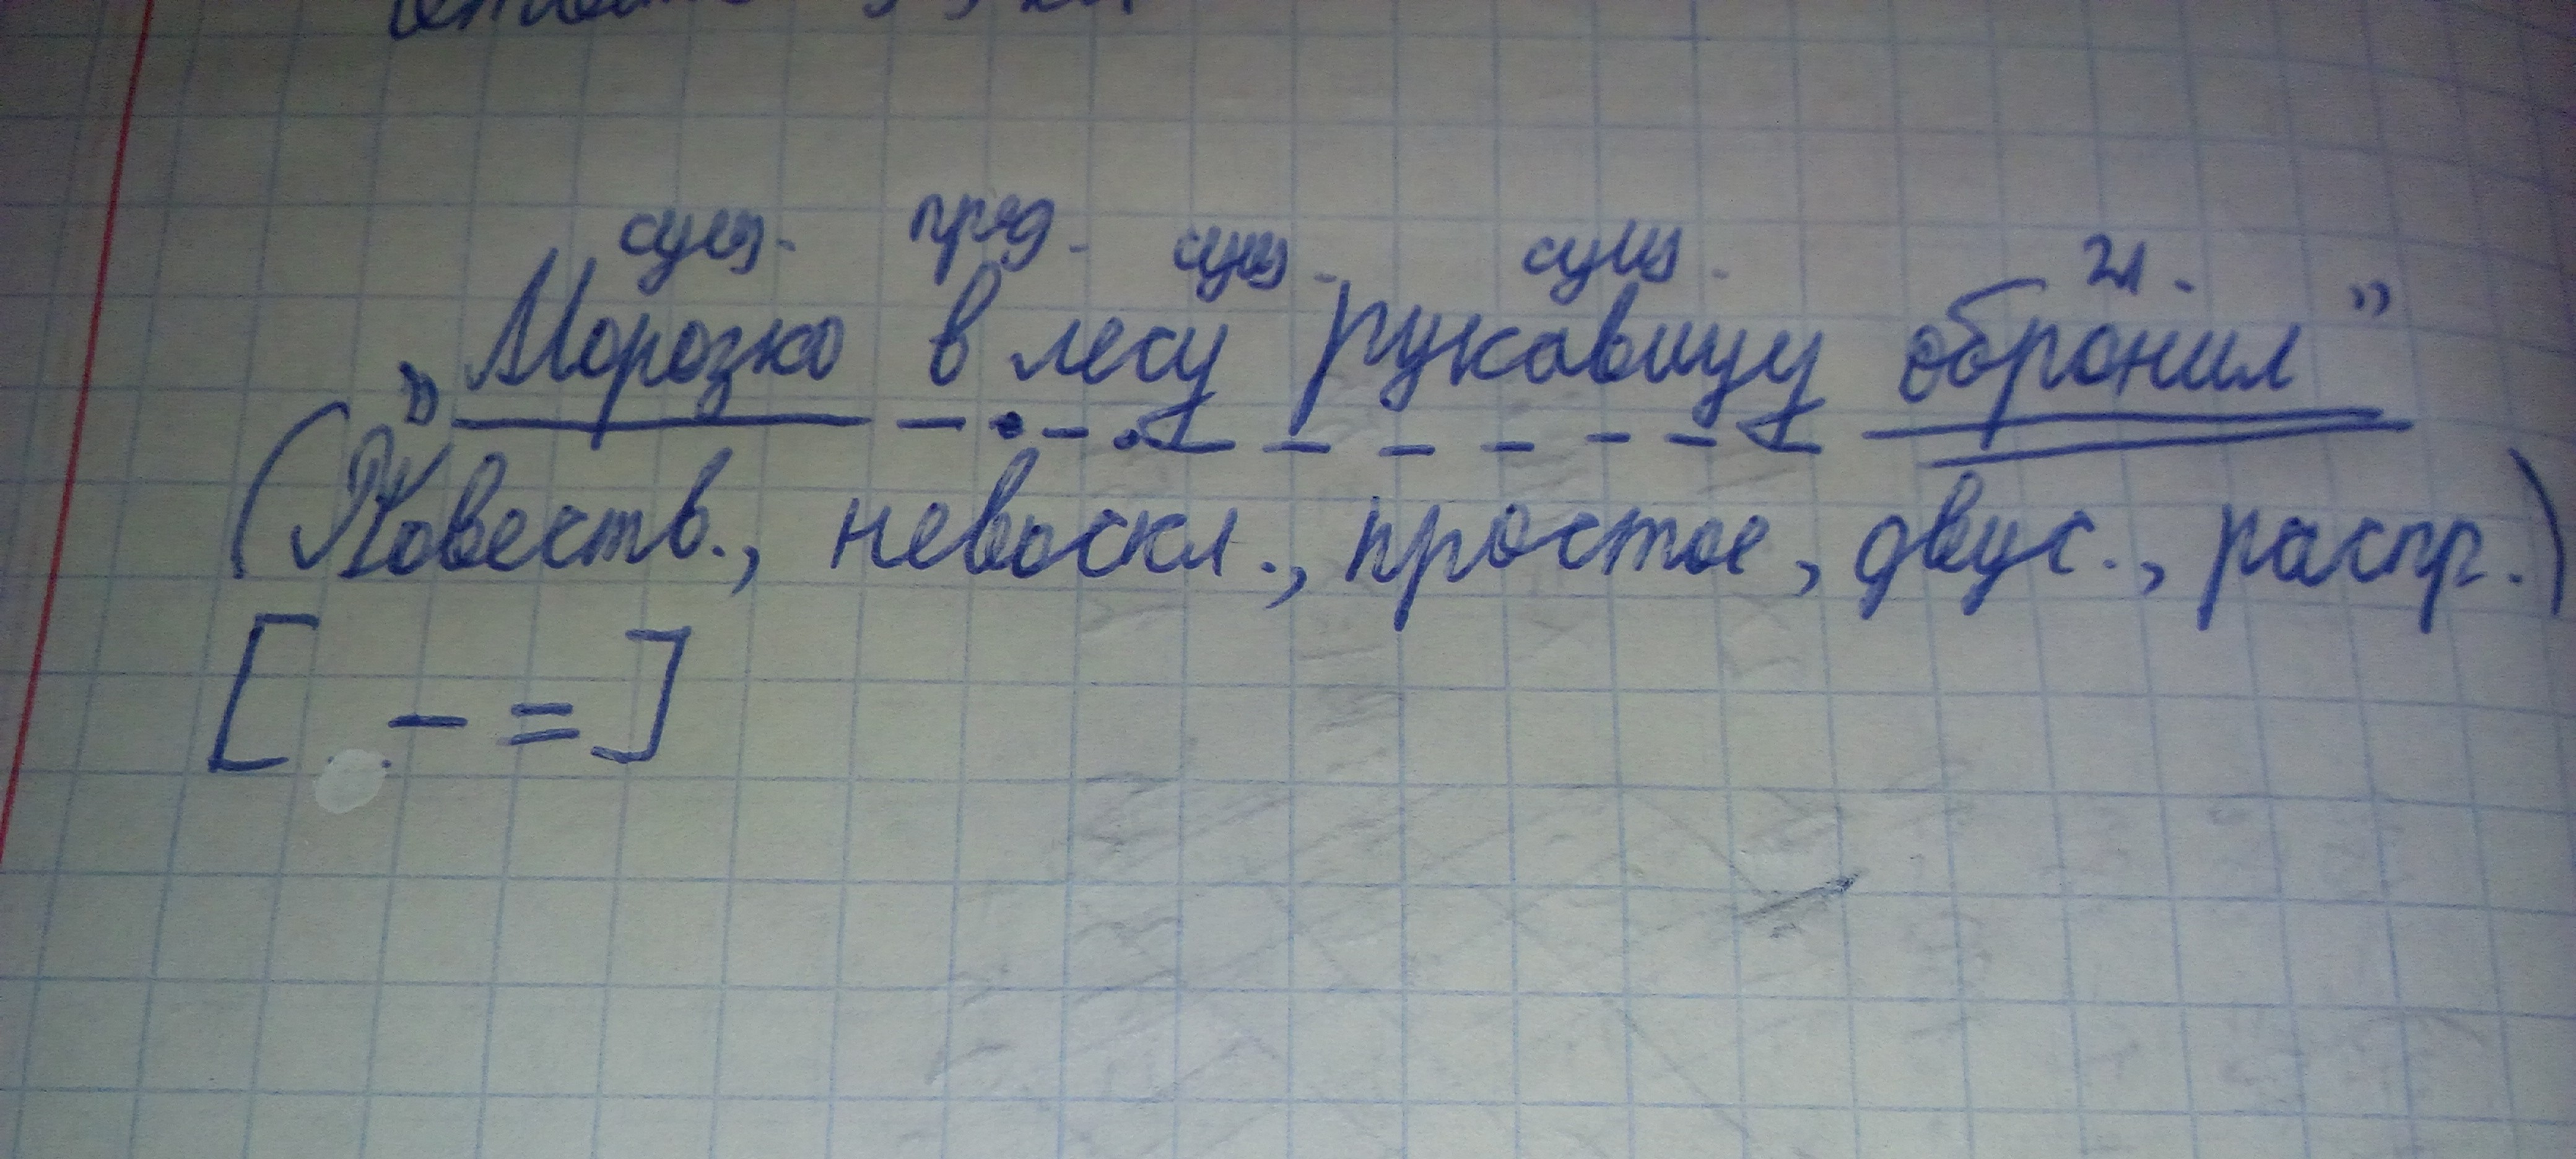 сущ. пред. сущ. сущ. гл.
„Морозко в лесу рукавицу обронил"
(Повеств., невоскл., простое, двус., распр.)
[ – = ]